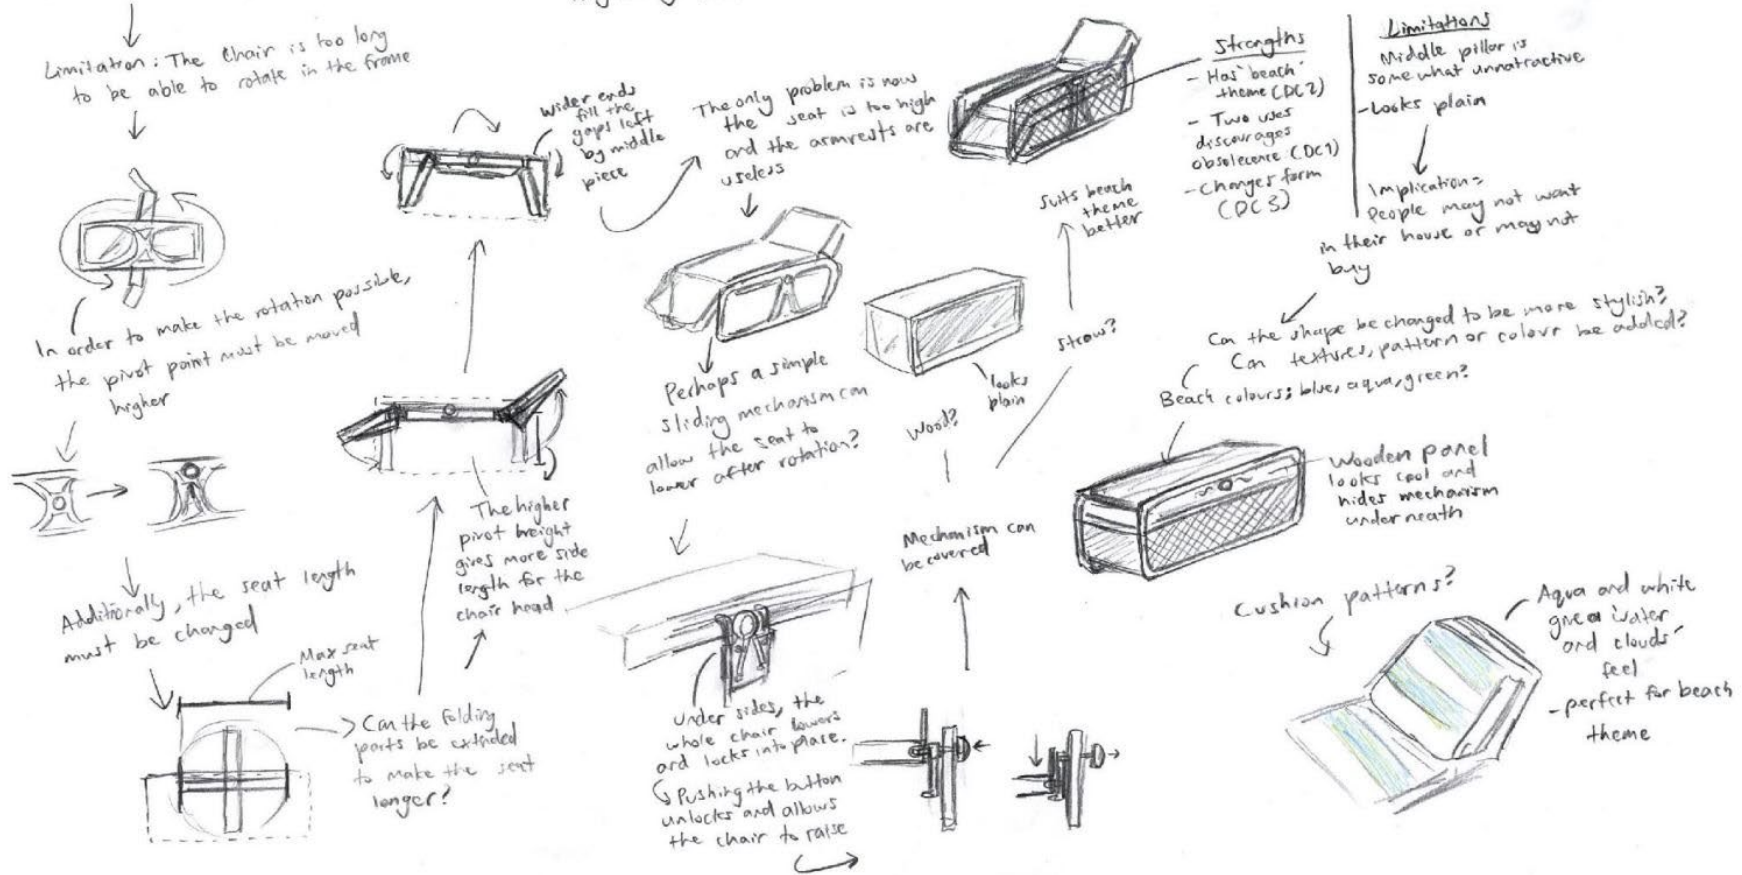 Limitation: The Chair is too long
to be able to rotate in the frame
In order to make the rotation possible,
the pivot point must be moved
higher
Additionally, the seat length
must be changed
Max seat
length
Can the folding
parts be extended
to make the seat
longer?
The higher
pivot height
gives more side
length for the
chair head
wider ends
fill the
gaps left
by middle
piece
The only problem is now
the seat is too high
and the armrests are
useless
Perhaps a simple
sliding mechanism can
allow the seat to
lower after rotation?
Under sides, the
whole chair lowers
and locks into place.
Pushing the button
unlocks and allows
the chair to raise
Mechanism can
be covered
Wood?
looks
plain
Straw?
Suits beach
theme
better
Strengths
- Has 'beach'
theme (DC2)
- Two uses
discourages
obsolecence (DC1)
- Changes form
(DC3)
Limitations
Middle pillar is
some what unnatractive
- Looks plain
Implication:
People may not want
in their house or may not
buy
Can the shape be changed to be more stylish?
Can textures, pattern or colour be added?
Beach colours; blue, aqua, green?
Wooden panel
looks cool and
hides mechanism
underneath
Cushion patterns?
Aqua and white
give a 'water
and clouds'
feel
- perfect for beach
theme